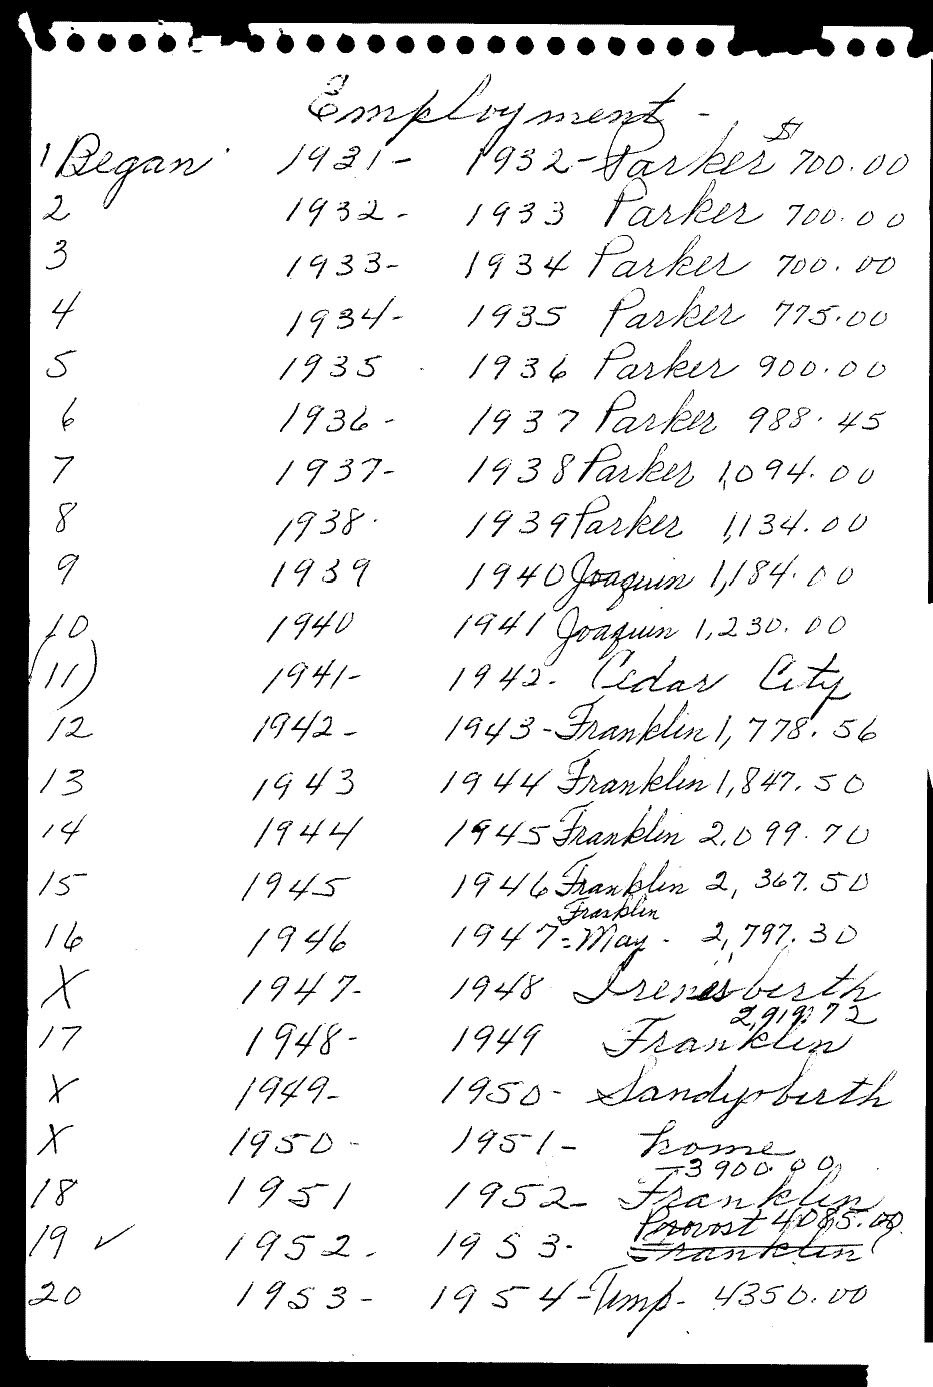 Employment -
1 Began 1931- 1932- Parker $ 700.00
2 1932- 1933 Parker 700.00
3 1933- 1934 Parker 700.00
4 1934- 1935 Parker 775.00
5 1935 1936 Parker 900.00
6 1936- 1937 Parker 988.45
7 1937- 1938 Parker 1,094.00
8 1938. 1939 Parker 1,134.00
9 1939 1940 Joaquin 1,184.00
10 1940 1941 Joaquin 1,230.00
(11) 1941- 1942- Cedar City
12 1942- 1943- Franklin 1,778.56
13 1943 1944 Franklin 1,847.50
14 1944 1945 Franklin 2.099.70
15 1945 1946 Franklin 2,367.50
Franklin
16 1946 1947 = May - 2,797.30
X 1947- 1948 Irene's birth
2,919.72
17 1948- 1949 Franklin
X 1949- 1950- Sandy's birth
X 1950- 1951- home
3900.00
18 1951 1952- Franklin
Provost 4085.00
19 ✓ 1952- 1953- Franklin
20 1953- 1954- Timp- 4350.00